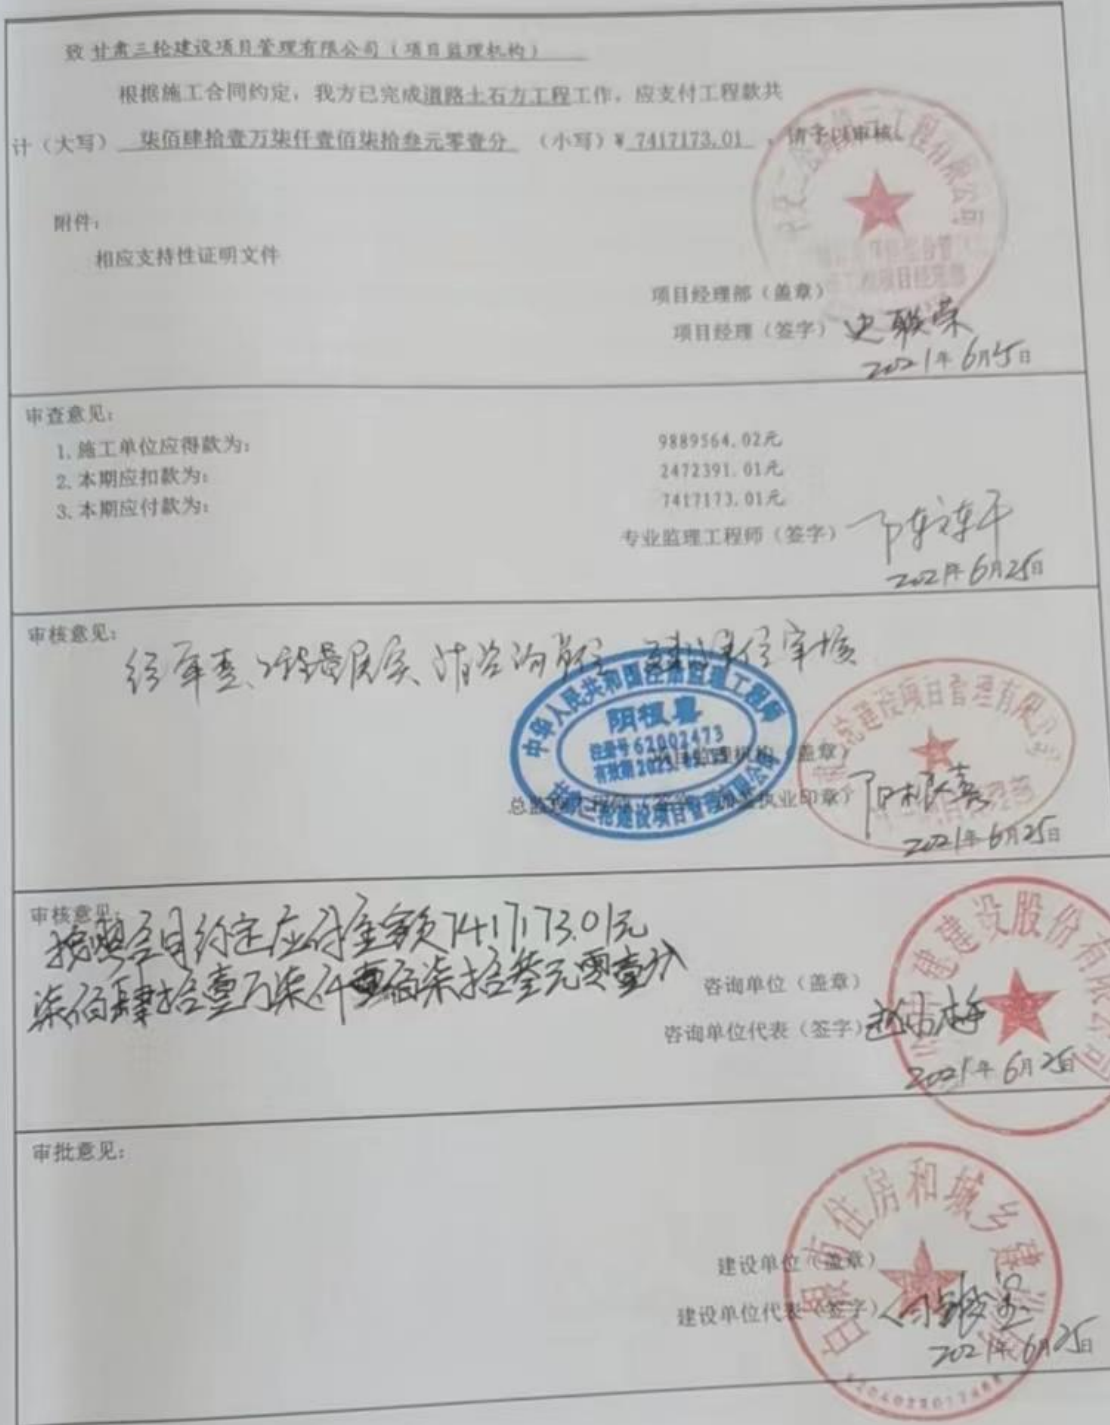 致 甘肃三轮建设项目管理有限公司（项目监理机构）
根据施工合同约定，我方已完成道路土石方工程工作，应支付工程款共
计（大写） 柒佰肆拾壹万柒仟壹佰柒拾叁元零壹分 （小写）¥ 7417173.01 ，请予以审核。
附件：
相应支持性证明文件
项目经理部（盖章）
项目经理（签字） 史联荣
2021年6月25日
审查意见：
1. 施工单位应得款为： 9889564.02元
2. 本期应扣款为： 2472391.01元
3. 本期应付款为： 7417173.01元
专业监理工程师（签字）
2021年6月25日
审核意见：
经审查、 请咨询单位 建设单位审核
中华人民共和国注册监理工程师
阳根喜
注册号 62002473
有效期 2023.
甘肃三轮建设项目管理有限公司
项目监理机构（盖章）
总监理工程师（签字、加盖执业印章） 阳根喜
2021年6月25日
审核意见：
按照合同约定应付金额7417173.01元
柒佰肆拾壹万柒仟壹佰柒拾叁元零壹分
咨询单位（盖章）
咨询单位代表（签字） 赵小梅
2021年6月25日
建建设股份有限公司
审批意见：
建设单位（盖章）
建设单位代表（签字）
2021年6月25日
白银市住房和城乡建设局